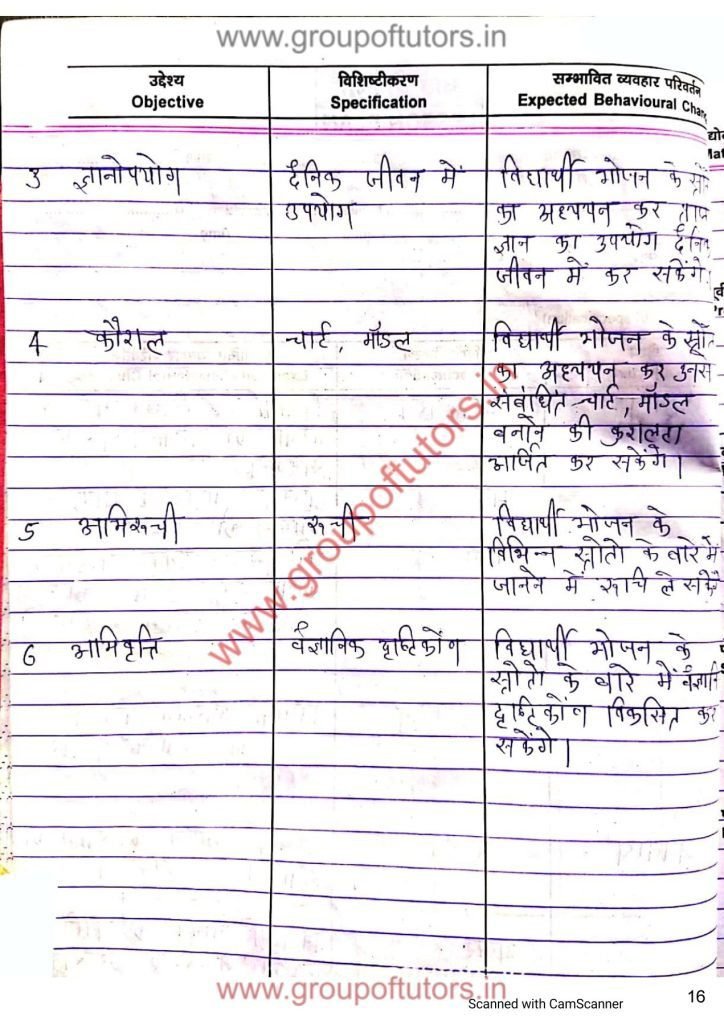 www.groupoftutors.in
उद्देश्य विशिष्टीकरण सम्भावित व्यवहार परिवर्तन
Objective Specification Expected Behavioural Chan
3 ज्ञानोपयोग दैनिक जीवन में विद्यार्थी भोजन के स्रोत
उपयोग का अध्ययन कर प्राप्त
ज्ञान का उपयोग दैनिक
जीवन में कर सकेंगे।
4 कौशल चार्ट, मॉडल विद्यार्थी भोजन के स्रोत
का अध्ययन कर उनसे
संबंधित चार्ट, मॉडल
बनाने की कुशलता
अर्जित कर सकेंगे।
5 अभिरूची रूची विद्यार्थी भोजन के
विभिन्न स्रोतो के बारे में
जानने में रूचि ले सकेंगे
6 अभिवृत्ति वैज्ञानिक दृष्टिकोण विद्यार्थी भोजन के
स्रोतो के बारे में वैज्ञानि
दृष्टिकोण विकसित कर
सकेंगे।
www.groupoftutors.in
www.groupoftutors.in
16
Scanned with CamScanner